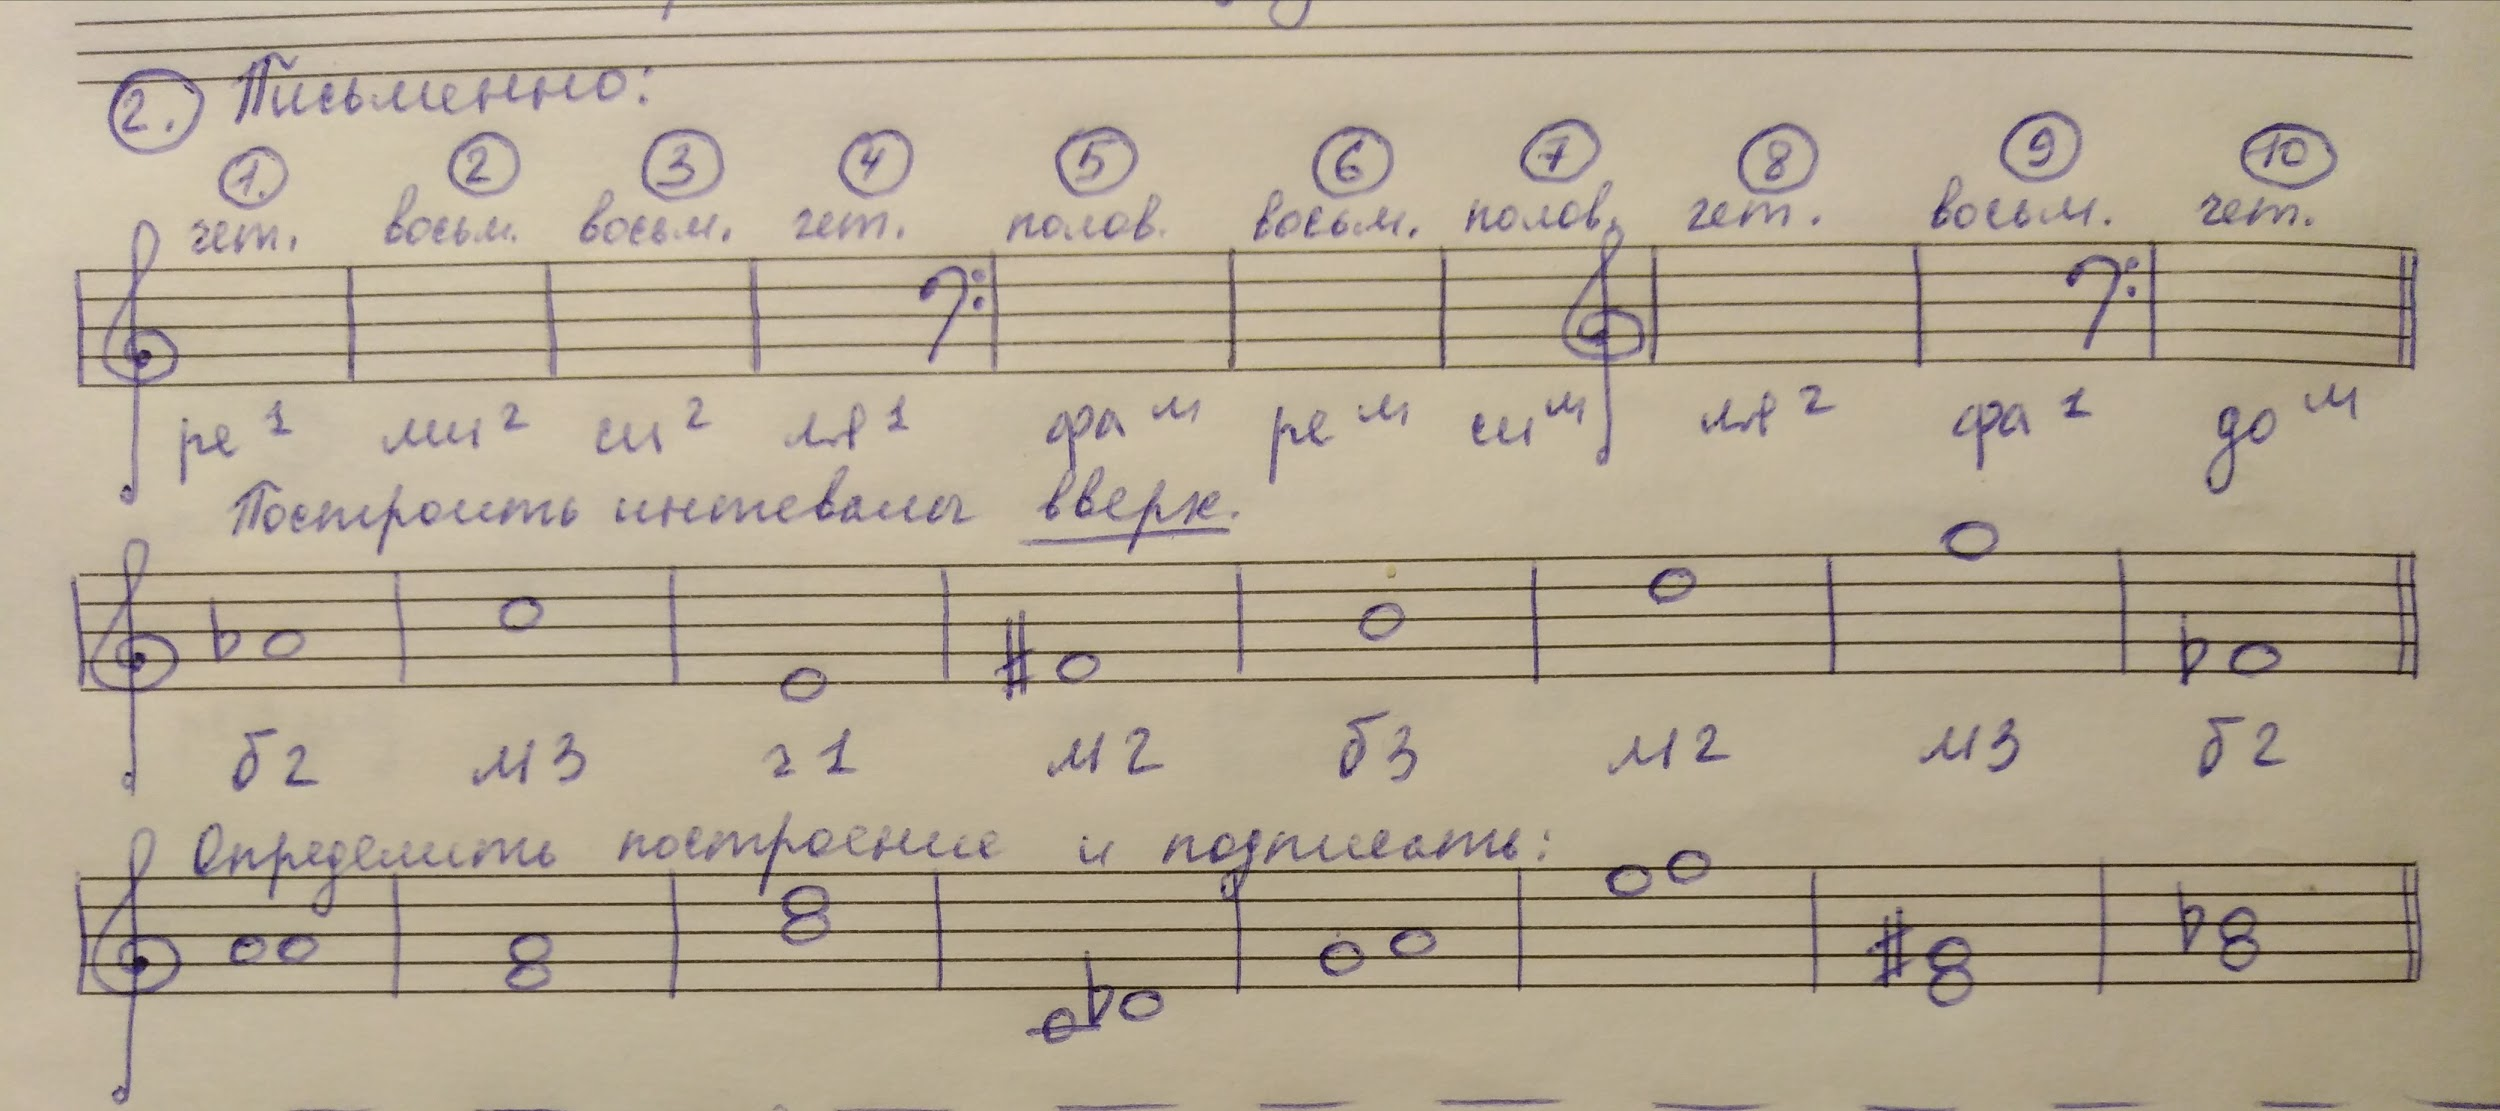 2. Письменно:
1. 2 3 4 5 6 7 8 9 10
чет. восьм. восьм. чет. полов. восьм. полов. чет. восьм. чет.
ре¹ ми² си² ля¹ фаᴹ реᴹ сиᴹ ля² фа¹ доᴹ
Построить интевалы вверх.
б2 м3 ч1 м2 б3 м2 м3 б2
Определить построение и подписать: